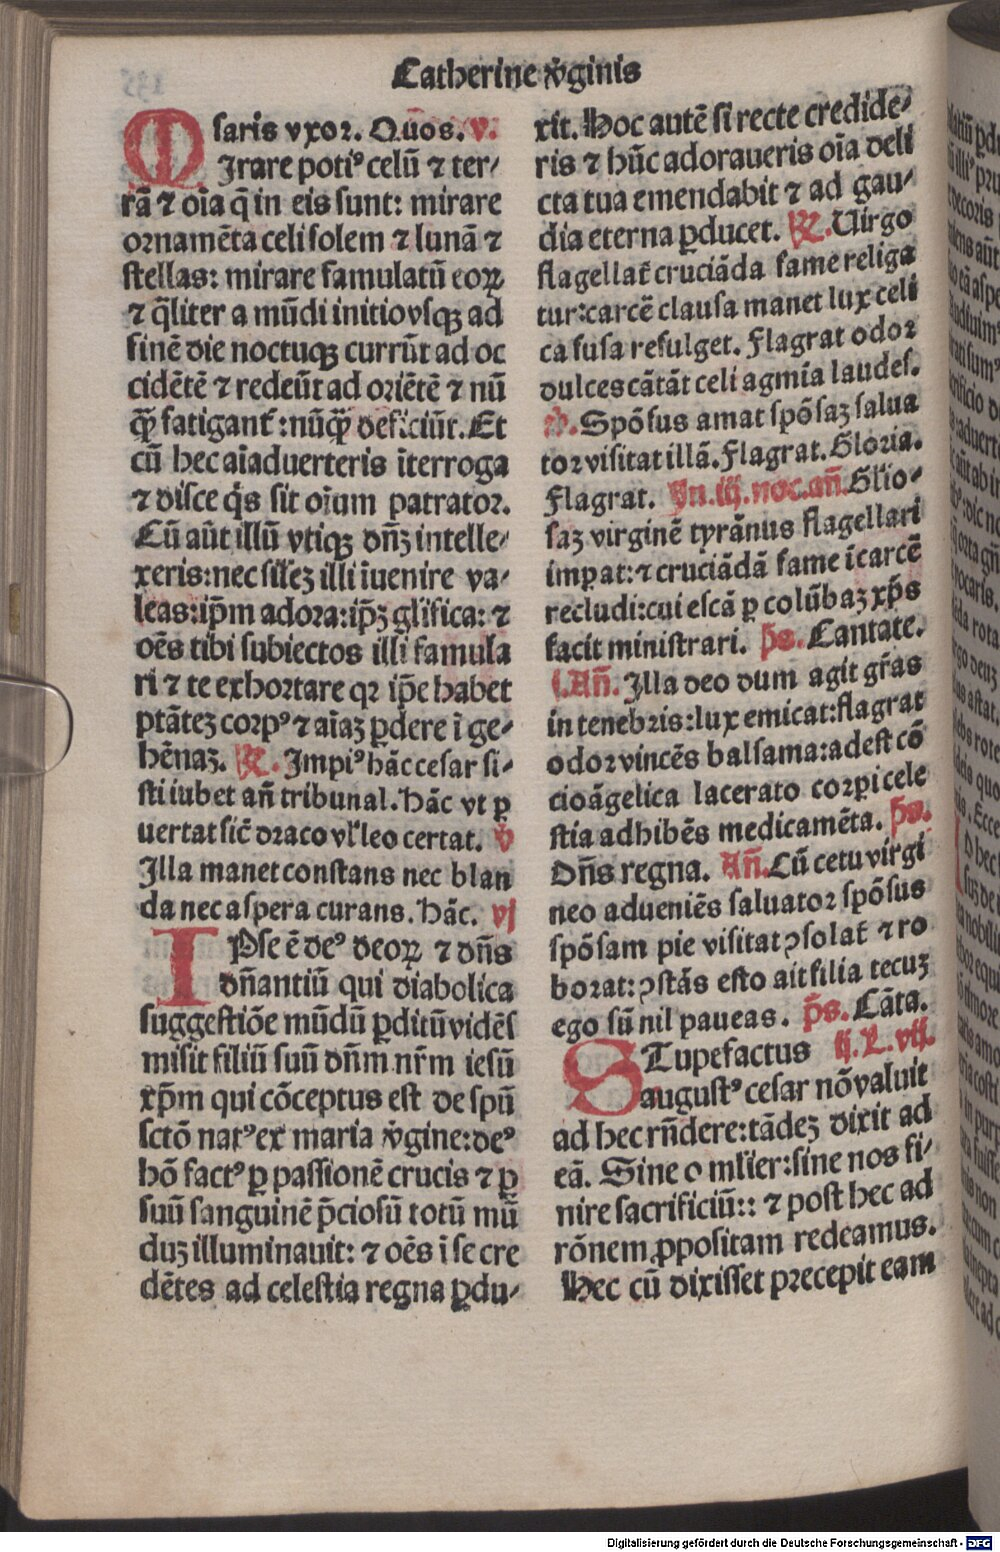 Catherine v̇ginis
saris vxor. Quos. v.
MIrare poti⁹ celū ⁊ ter⸗
rā ⁊ oīa q̄ in eis sunt: mirare
ornamēta celi solem ⁊ lunā ⁊
stellas: mirare famulatū eoꝝ
⁊ q̄liter a mūdi initio vsqꝫ ad
finē die noctuqꝫ currūt ad oc
cidētē ⁊ redeūt ad oriētē ⁊ nū
q̄ꝫ fatigant̄: nūq̄ꝫ deficiūt. Et
cū hec aīaduerteris īterroga
⁊ disce q̇s sit oīum patrator.
Cū aūt illū vtiqꝫ dn̄ꝫ intelle⸗
xeris: nec sil'eꝫ illi īuenire va⸗
leas: ip̄m adora: ip̄ꝫ gl'ifica: ⁊
oēs tibi subiectos illi famula
ri ⁊ te exhortare qꝛ ip̄e habet
ptāteꝫ corp⁹ ⁊ aīaꝫ ꝑdere ī ge⸗
hēnaꝫ. ℟. Impi⁹ hāc cesar si⸗
sti iubet an̄ tribunal. Hāc vt ꝑ
uertat sic̄ draco vl' leo certat. ℣
Illa manet constans nec blan
da nec aspera curans. Hāc. vj
IPse ē de⁹ deoꝝ ⁊ dn̄s
dn̄antiū qui diabolica
suggestiōe mūdū ꝑditū vidēs
misit filiū suū dn̄m nr̄m iesū
xp̄m qui cōceptus est de spū
sctō nat⁹ ex maria v̇gine: de⁹
hō fact⁹ ꝑ passionē crucis ⁊ ꝑ
suū sanguinē p̄ciosū totū mū
duꝫ illuminauit: ⁊ oēs ī se cre
dētes ad celestia regna ꝑdu⸗
xit. Hoc autē si recte credide⸗
ris ⁊ hūc adoraueris oīa deli
cta tua emendabit ⁊ ad gau⸗
dia eterna ꝑducet. ℟. Uirgo
flagellat̄ cruciāda fame religa
tur: carcē clausa manet lux celi
ca fusa refulget. Flagrat odor
dulces cātāt celi agmīa laudes.
℣. Spōsus amat spōsaꝫ salua
tor visitat illā. Flagrat. Gloria.
Flagrat. In. iij. noc. an̄. Gl'io⸗
saꝫ virginē tyrānus flagellari
imꝑat: ⁊ cruciādā fame ī carcē
recludi: cui escā ꝑ colūbaꝫ xp̄s
facit ministrari. p̄s. Cantate.
An̄. Illa deo dum agit gr̄as
in tenebris: lux emicat: flagrat
odor vincēs balsama: adest cō
cio āgelica lacerato corpi cele
stia adhibēs medicamēta. p̄s.
Dn̄s regna. An̄. Cū cetu virgi
neo adueniēs saluator spōsus
spōsam pie visitat ꝯsolat̄ ⁊ ro
borat: ꝯstās esto ait filia tecuꝫ
ego sū nil paueas. p̄s. Cāta.
STupefactus ij. L. vij.
august⁹ cesar nō valuit
ad hec rn̄dere: tādeꝫ dixit ad
eā. Sine o ml'ier: sine nos fi⸗
nire sacrificiū:: ⁊ post hec ad
rōnem ꝓpositam redeamus.
Hec cū dixisset precepit eam
Digitalisierung gefördert durch die Deutsche Forschungsgemeinschaft - DFG